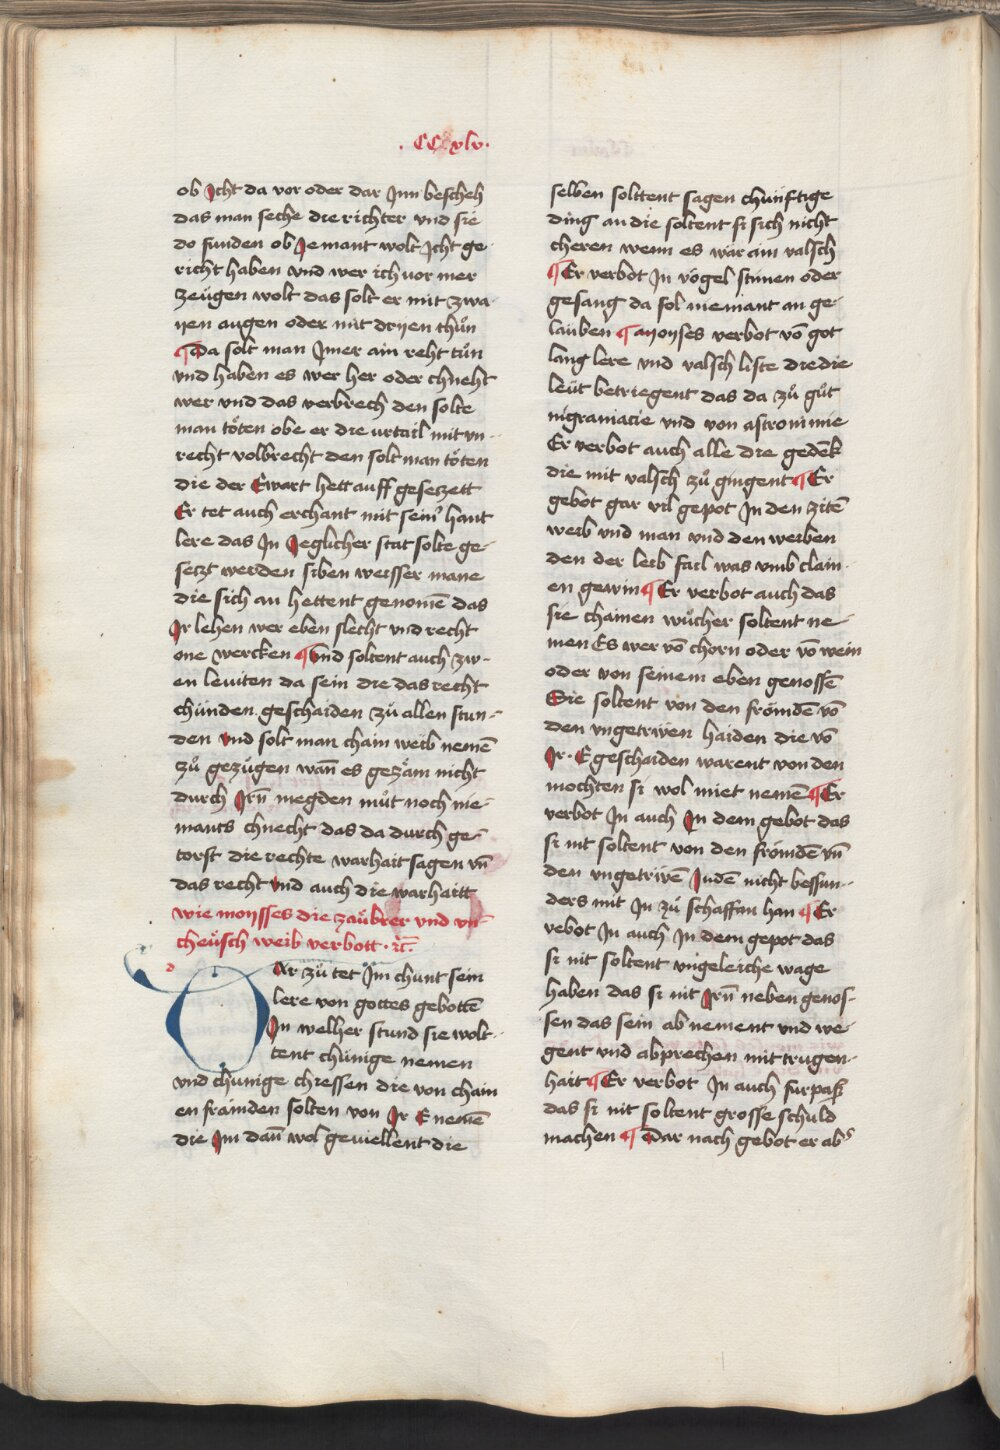 . CCxlv .
ob Icht da vor oder dar Inn bescheh
das man seche die richter vnd sie
do funden ob Jemant wolt Icht ge-
richt haben vnd wer ich vor mer
zeügen wolt das solt er mit zwa-
yen augen oder mit dryen thůn
¶ Da solt man Imer ain reht tůn
vnd haben es wer her oder chneht
wer vnd das verbrech den solte
man tötten obe er die vrtail mit vn-
recht volbrecht den solt man tötten
die der Ewart hett auff gesetzett
Er tet auch erchant mit sein' haut
lere das In Jeglicher stat solte ge-
setzt werden siben weisser mane
die sich an hettent genomē das
Ir lehen wer eben slecht vnd recht
one wercken ¶ Vnd soltent auch zw-
en leuiten da sein die das recht
chünden geschaiden zů allen stun-
den vnd solt man chain weib nemē
zů gezügen wañ es gezäm nicht
durch Irñ megden můt noch nie-
mants chnecht das da durch ge-
torst die rechte warhait sagen vñ
das recht vnd auch die warhaitt
wie moysses die zaübrer vnd vn-
cheüsch weib verbott · ꝛc̄.
DAr zů tet Im chunt sein
lere von gottes gebottē
In welher stund sie wolt-
tent chünige nemen
vnd chunige chiessen die von chain
en främden solten von Ir E nemē
die Im dañ wol geuiellent die
selben solttent sagen chünftige
ding an die soltent si sich nicht
cheren wenn es wär ain valsch
¶ Er verbot In vögel stimen oder
gesang da sol niemant an ge-
lauben ¶ Moyses verbot vō got
lang lere vnd valsch liste die die
leüt betriegent das da zů gůt
nigramacie vnd von astronimie
Er verbot auch alle die gedēk
die mit valsch zů gingent ¶ Er
gebot gar vil gepot In den zitē
weib vnd man vnd den weiben
den der leib fail was vmb clain-
en gewin ¶ Er verbot auch das
sie chainen wůcher soltent ne-
men Es wer vō chorn oder vō wein
oder von seinem eben genossē
Sie soltent von den frömdē vō
den vngetriẅen haiden die vō
Ir · E geschaiden warent von den
mochten si wol miet nemē ¶ Er
verbot In auch In dem gebot das
si nit soltent von den frömdē vñ
den vngetriẅē Judē nicht bessun-
ders mit In zů schaffan han ¶ Er
vebot In auch In dem gepot das
si nit soltent vngeleiche wage
haben das si nit Irñ neben genos-
sen das sein ab nement vnd we-
gent vnd abprechen mit trugen-
hait ¶ Er verbot In auch furpaß
das si nit soltent grosse schuld
machen ¶ Dar nach gebot er ab'